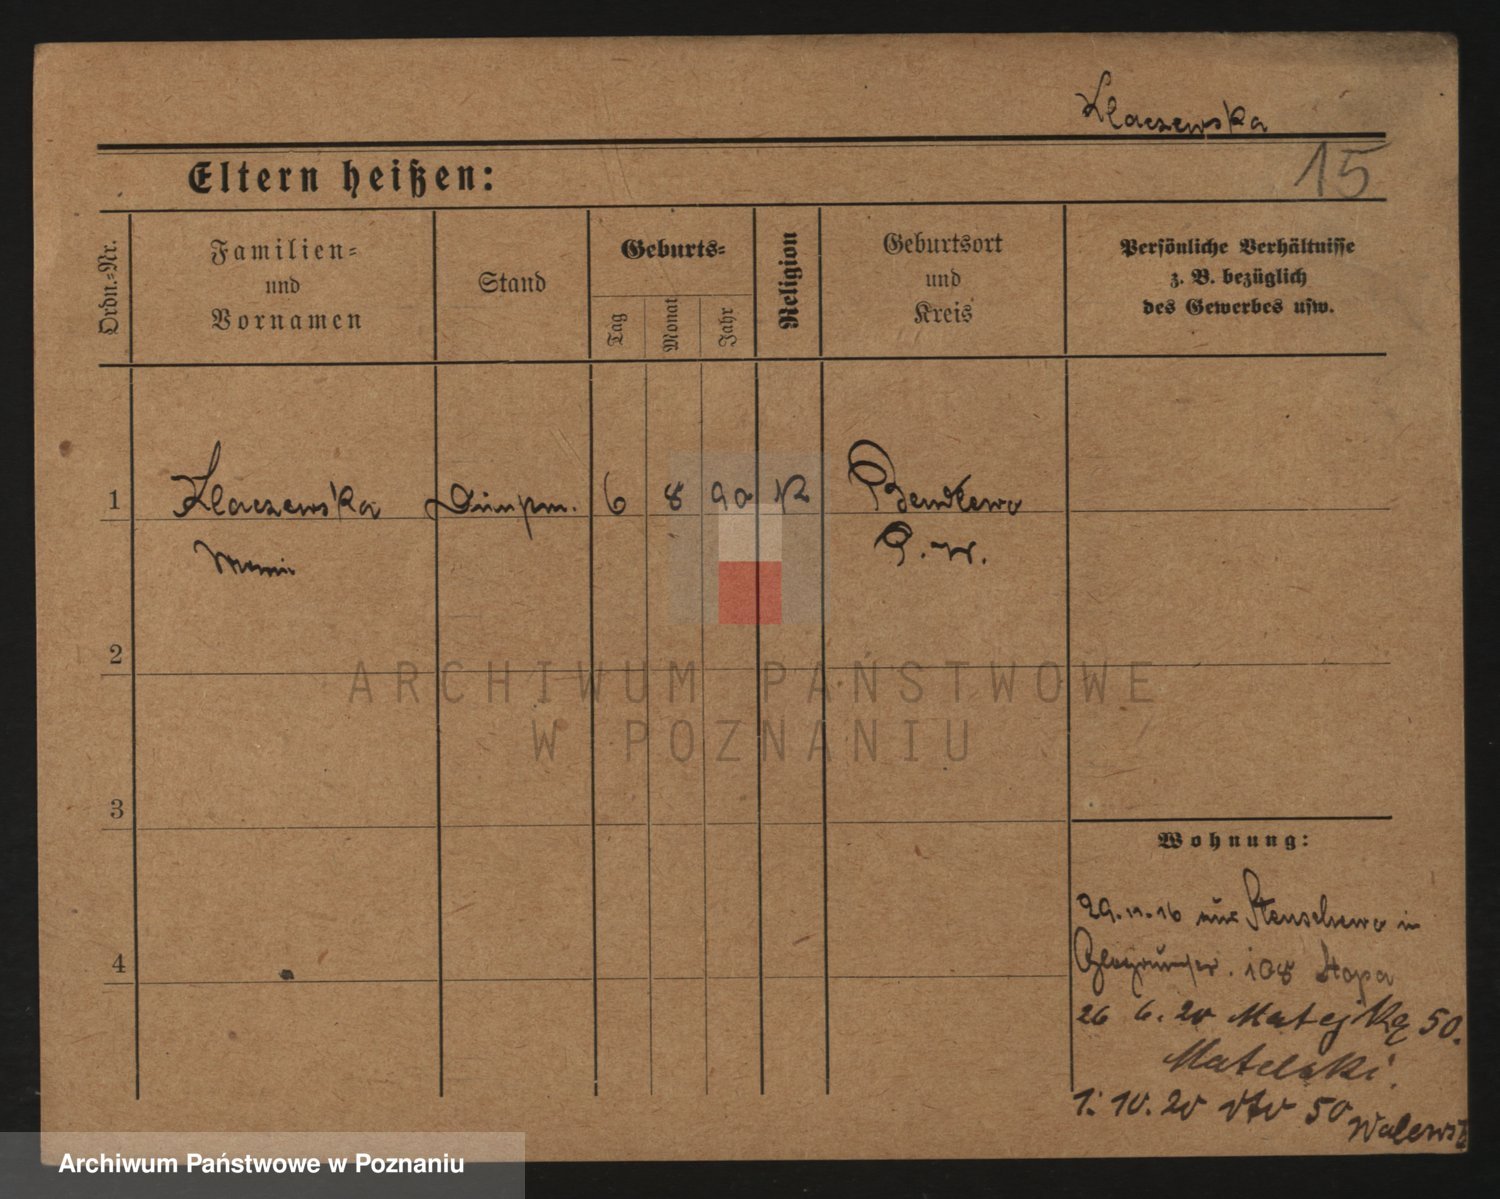 Klaczewska
15
Eltern heißen:
Ordn.-Nr.
Familien-
und
Vornamen
Stand
Geburts-
Tag
Monat
Jahr
Religion
Geburtsort
und
Kreis
Persönliche Verhältnisse
z. B. bezüglich
des Gewerbes usw.
1
Klaczewska
6
8
90
K
Bendlewo
P. W.
2
ARCHIWUM PAŃSTWOWE
W POZNANIU
3
Wohnung:
29.11.16 aus Stenschewo in
108 Stopa
4
26 6. 20 Matejki 50.
Matelski.
1. 10. 20 50
Archiwum Państwowe w Poznaniu